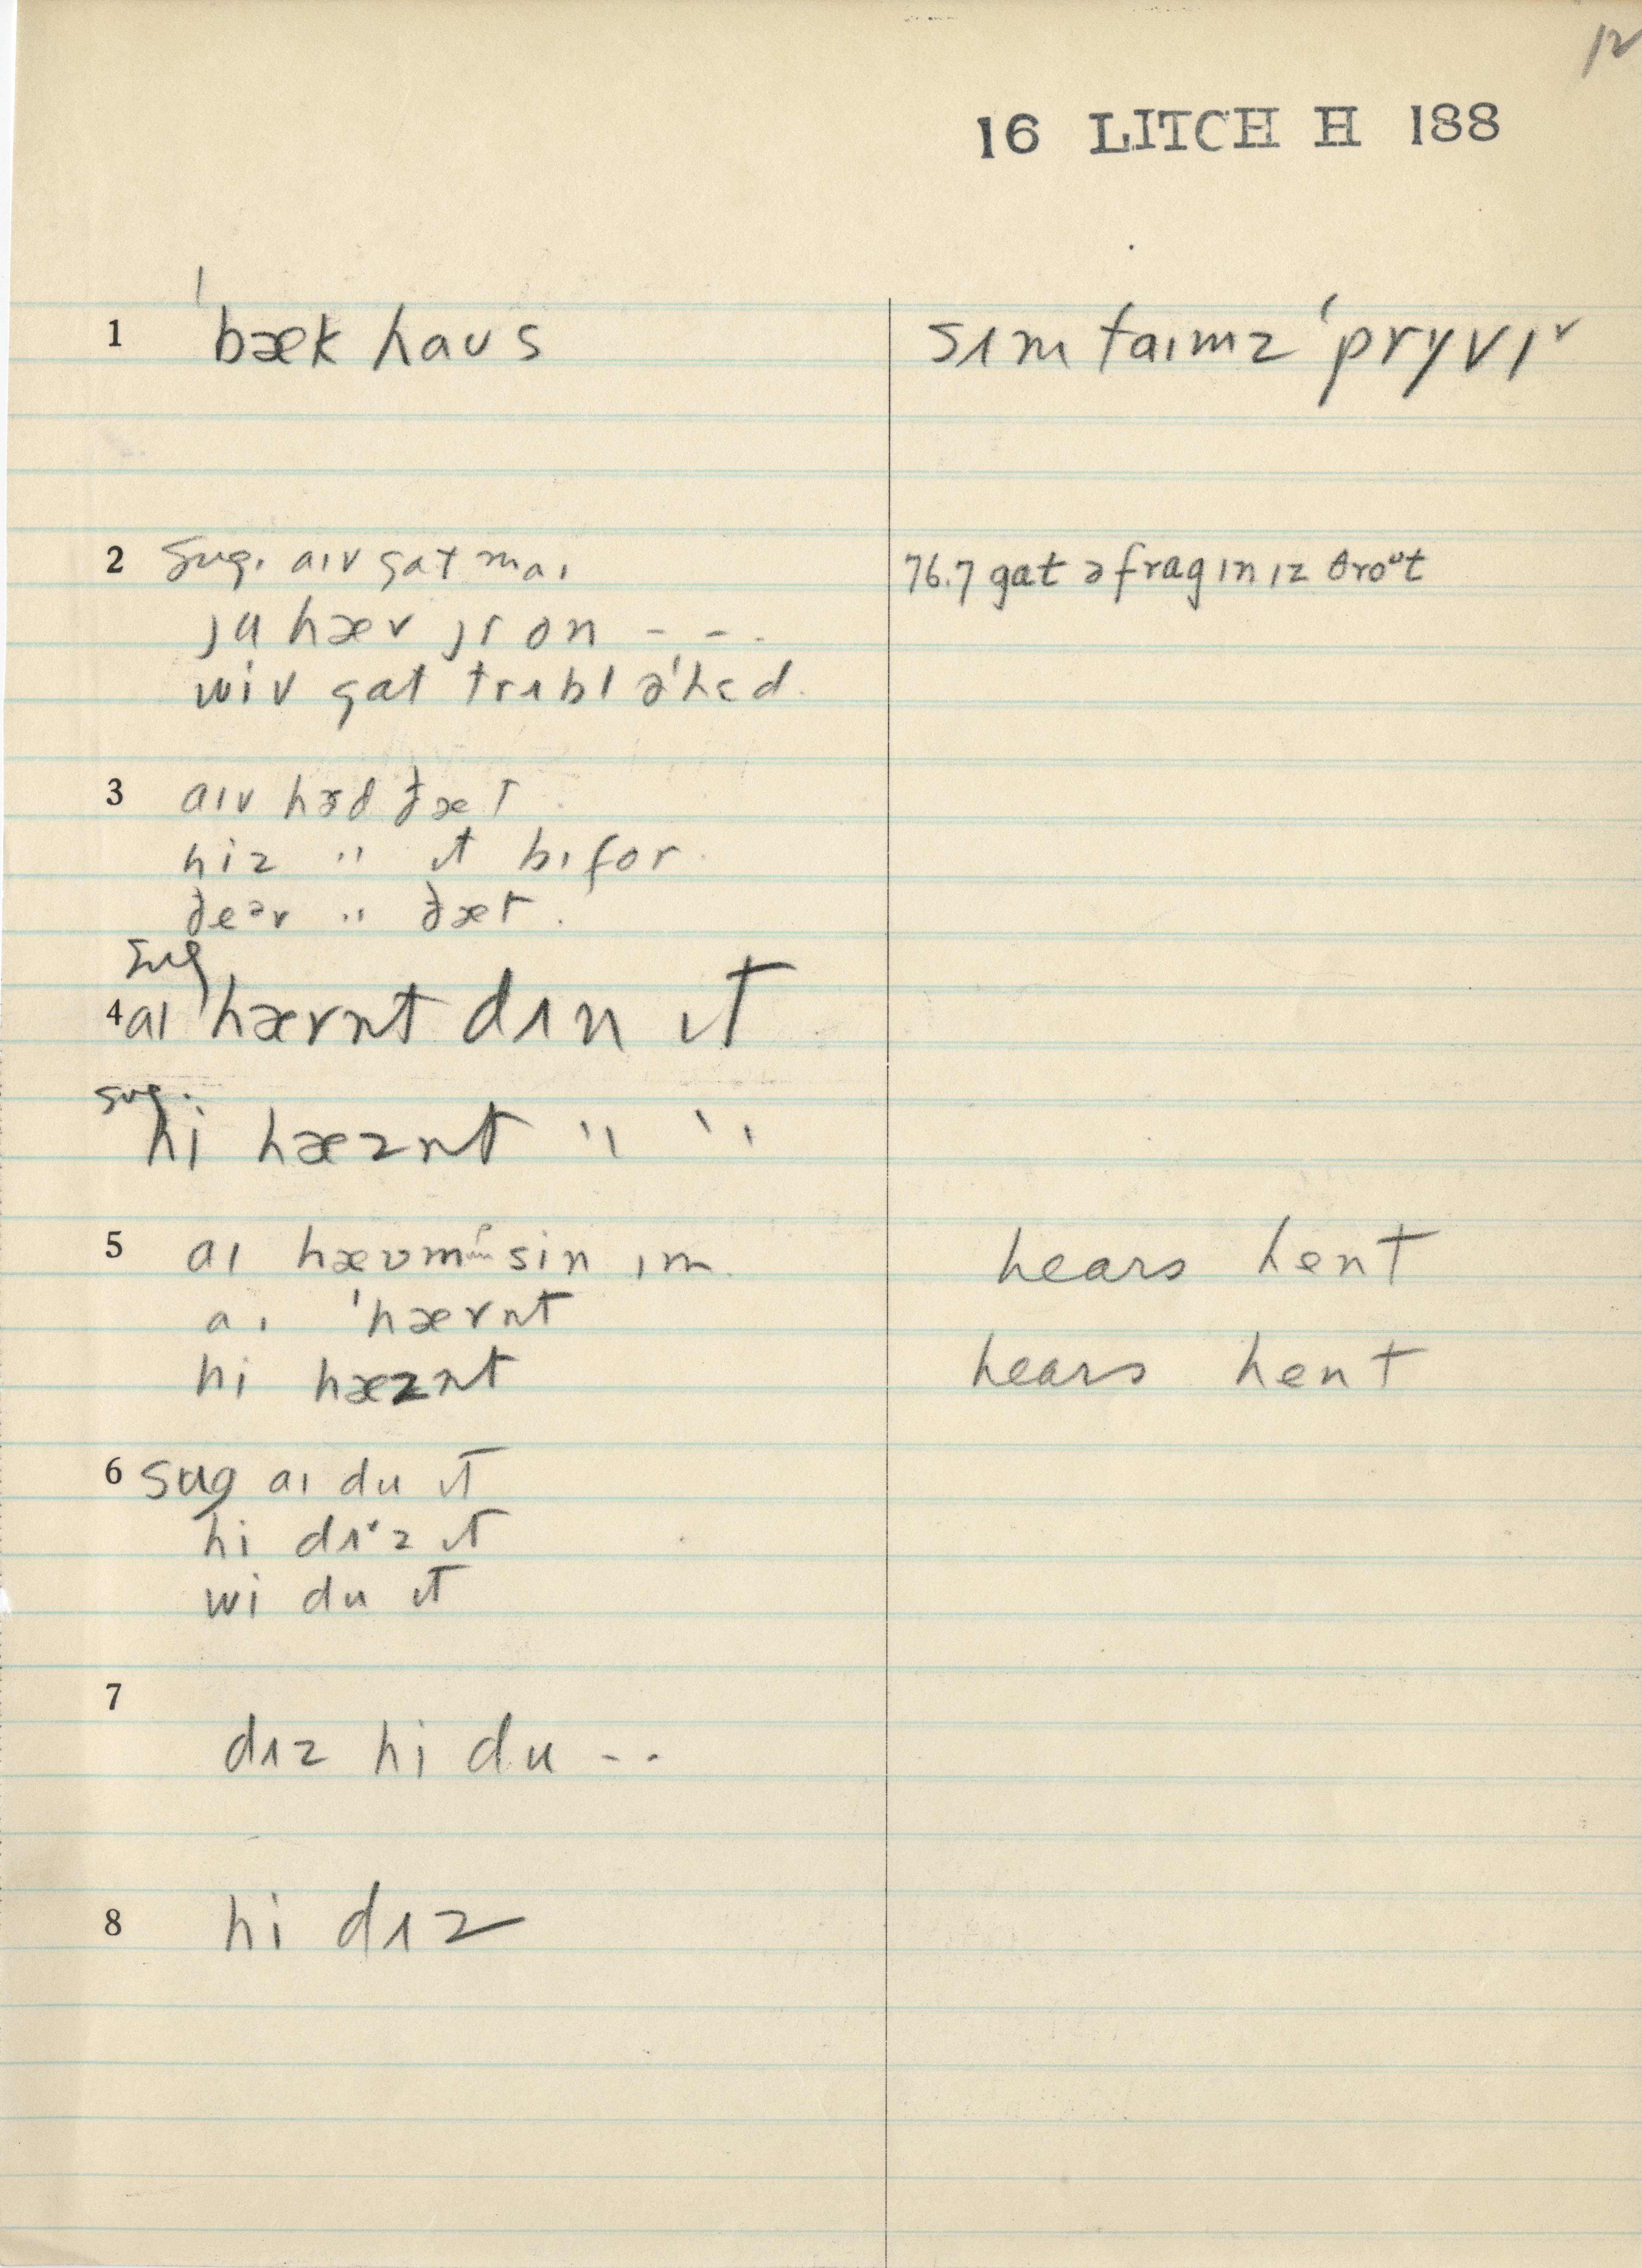 12
16 LITCH H 188
1 ˈbæk haʊs
sʌmtaɪmz ˈprɪvɪ˅
2 Sug. aɪv gat maɪ
ju hæv jr on - - -
wiv gat trʌbl əˈhɛd
76.7 gat ə frag ɪn ɪz θroᵘt
3 aɪv hɜd ðæt
hiz " ɪt bɪfor
ðeəv " ðæt.
Sug
4 aɪ ˈhævnt dʌn ɪt
sug.
hi hæznt " "
5 aɪ sin ɪm
hears hent
aɪ ˈhævnt
hi hæznt
hears hent
6 sug aɪ du ɪt
hi dʌ˅z ɪt
wi du ɪt
7
dʌz hi du - -
8 hi dʌz